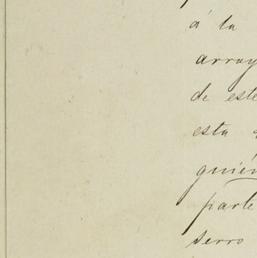 á la
arroy
de este
esta
quien
parte
serro